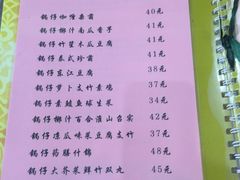 锅仔咖喱杂菌 40元
锅仔椰汁南瓜香芋 41元
锅仔竹笙木瓜豆腐 41元
锅仔泰式珍菌 41元
锅仔东江豆腐 38元
锅仔萝卜支竹素鸡 37元
锅仔素鲍鱼球生菜 34元
锅仔椰汁百合淮山杏実 42元
锅仔凉瓜味菜豆腐支竹 37元
锅仔药膳什锦 48元
锅仔大芥菜鲜竹双丸 45元